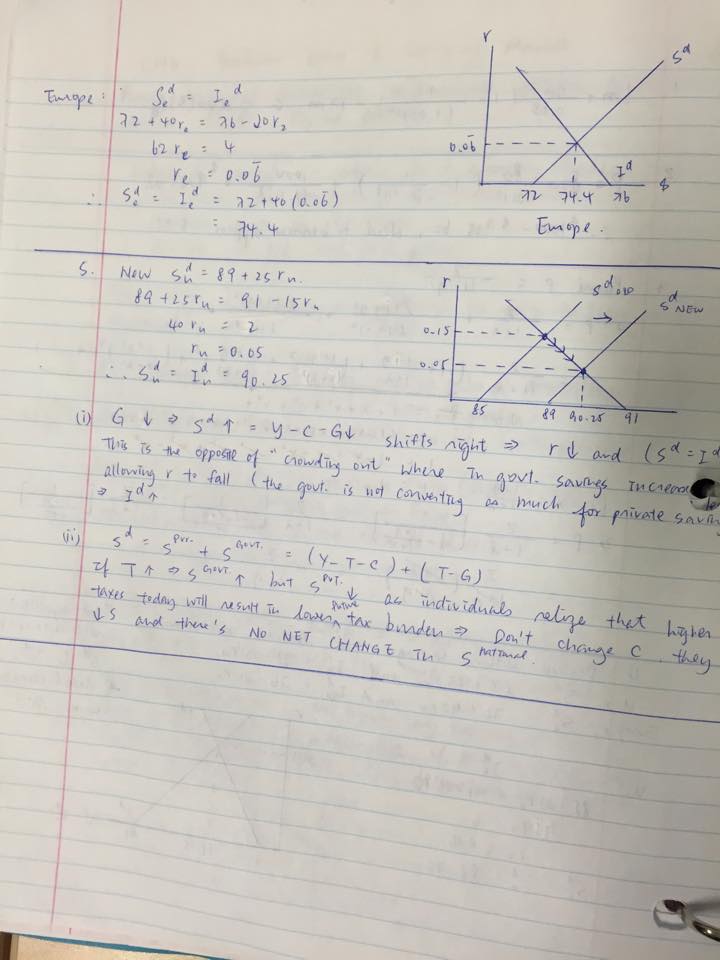 Europe : S_e^d = I_e^d
72 + 40r_e = 76 - 20r_2
62 r_e = 4
r_e = 0.06̄
∴ S_e^d = I_e^d = 72 + 40 (0.06̄)
= 74.4
r
S^d
0.06̄
I^d
$
72 74.4 76
Europe.
5. New S_u^d = 89 + 25 r_u.
89 + 25 r_u = 91 - 15 r_u
40 r_u = 2
r_u = 0.05
∴ S_u^d = I_u^d = 90.25
r
S^d OLD
→
S^d NEW
0.15
0.05
85 89 90.25 91
(i) G ↓ ⇒ S^d ↑ = Y - C - G↓ shifts right ⇒ r ↓ and (S^d = I^d
This is the opposite of "crowding out" where in govt. savings increase
allowing r to fall (the govt. is not converting as much for private savin
⇒ I^d ↑
(ii) S^d = S^Pvt. + S^Govt. = (Y - T - C) + (T - G)
If T ↑ ⇒ S^Govt. ↑ but S^Pvt. ↓ as individuals realize that higher
taxes today will result in lower future tax burden ⇒ Don't change C. they
↓S and there's NO NET CHANGE In S^national.